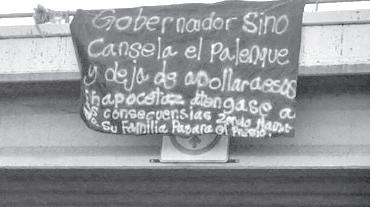 Gobernador Sino
Cansela el Palenque
y deja de apollar aesos
chapocetaz atengase a
consecuensias
Su Familia Pagara el Presio!